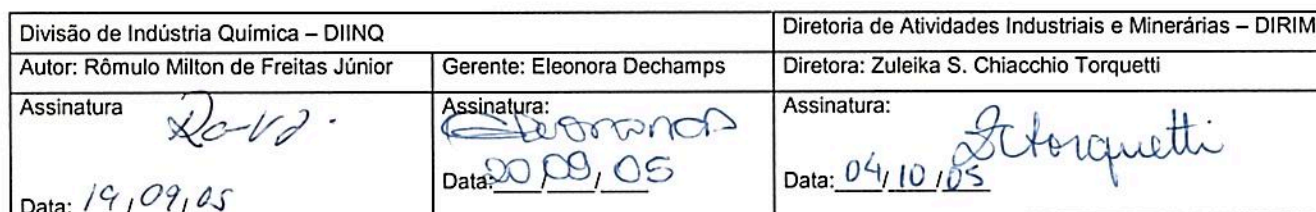 Divisão de Indústria Química – DIINQ
Diretoria de Atividades Industriais e Minerárias – DIRIM
Autor: Rômulo Milton de Freitas Júnior
Gerente: Eleonora Dechamps
Diretora: Zuleika S. Chiacchio Torquetti
Assinatura
Data: 19,09,05
Assinatura:
Eleonora
Data: 20/09/05
Assinatura:
ZCTorquetti
Data: 04/10/05